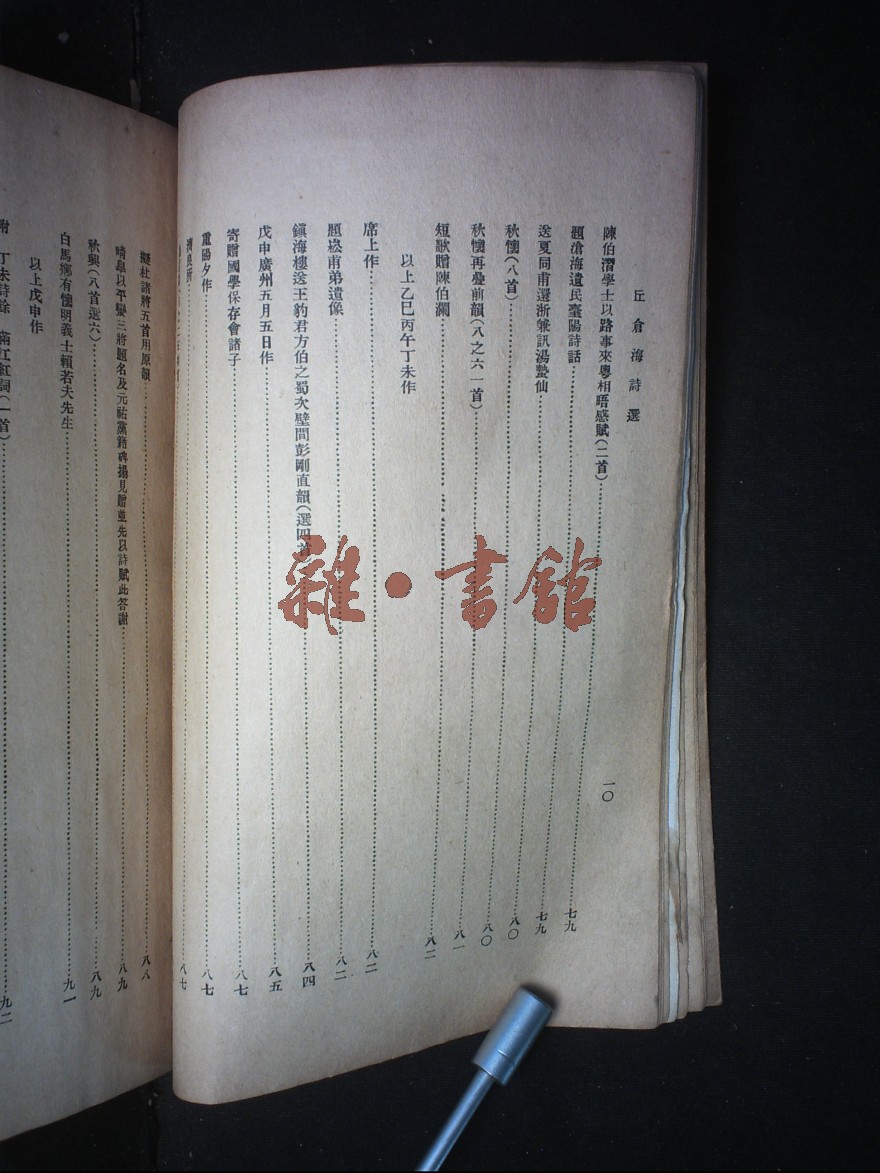 丘倉海詩選
一〇
陳伯潛學士以路事來粵相晤感賦(二首)……七九
題滄海遺民臺陽詩話……七九
送夏同甫還浙兼訊湯蟄仙……八〇
秋懷(八首)……八〇
秋懷再疊前韻(八之六一首)……八一
短歌贈陳伯瀾……八二
以上乙巳丙午丁未作
席上作……八二
題崧甫弟遺像……八二
鎮海樓送王豹君方伯之蜀次壁間彭剛直韻(選四首……八四
戊申廣州五月五日作……八五
寄贈國學保存會諸子……八七
重陽夕作……八七
……八七
擬杜諸將五首用原韻……八八
晴皋以平蠻三將題名及元祐黨籍碑搨見贈並先以詩賦此答謝……八九
秋興(八首選六)……八九
白馬鄉有懷明義士賴若夫先生……九一
以上戊申作
附 丁未詩餘 滿江紅詞(一首)……九二
雜·書館